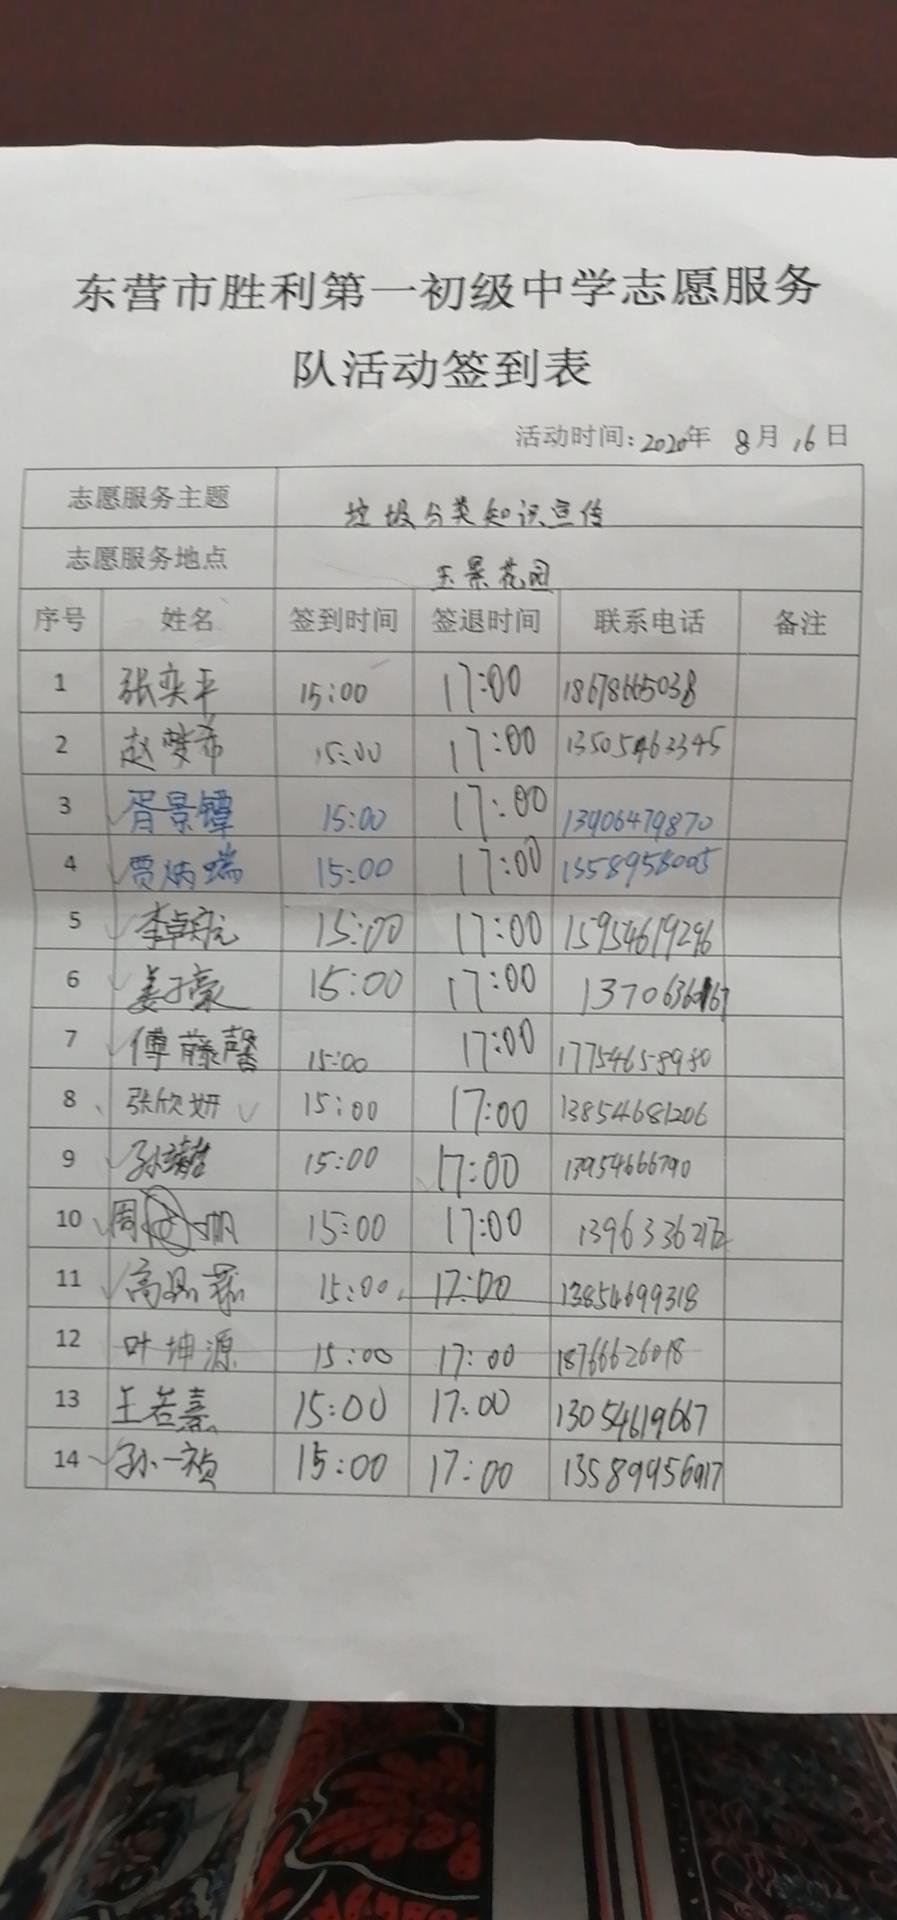 东营市胜利第一初级中学志愿服务
队活动签到表
活动时间：2020年 8月 16日
志愿服务主题 垃圾分类知识宣传
志愿服务地点 玉景花园
序号 姓名 签到时间 签退时间 联系电话 备注
1 张奕平 15:00 17:00 18678665038
2 赵梦希 15:00 17:00 13505463345
3 胥景镡 15:00 17:00 13906479870
4 贾炳瑞 15:00 17:00
5 李卓航 15:00 17:00 15954619296
6 姜子豪 15:00 17:00
7 傅藤馨 15:00 17:00 17754658980
8 张欣妍 15:00 17:00 13854681206
9 15:00 17:00 13954666790
10 周 帆 15:00 17:00
11 高 15:00 17:00 13854699318
12 叶坤源 15:00 17:00 18766626018
13 王若熹 15:00 17:00 13054619667
14 孙一祯 15:00 17:00 13589956917